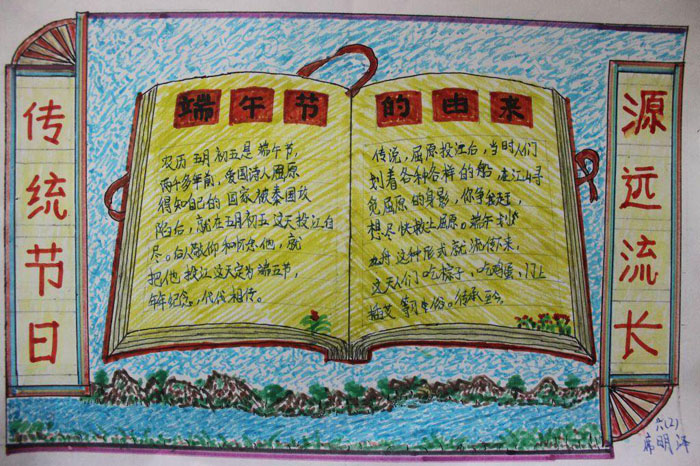 传统节日
端午节的由来
农历五月初五是端午节,
两千多年前,爱国诗人屈原
得知自己的国家被秦国攻
陷后,就在五月初五这天投江自
尽。后人敬仰和怀念他,就
把他投江这天定为端五节,
年年纪念,代代相传。
传说,屈原投江后,当时人们
划着各种各样的船在江中寻
觅屈原的身影,你争我赶,
想尽快救上屈原。端午
舟这种形式就流传下来,
这天人们吃粽子,吃鸡蛋,门上
插艾等习俗。传承至今,
源远流长
六(2)
席明洋